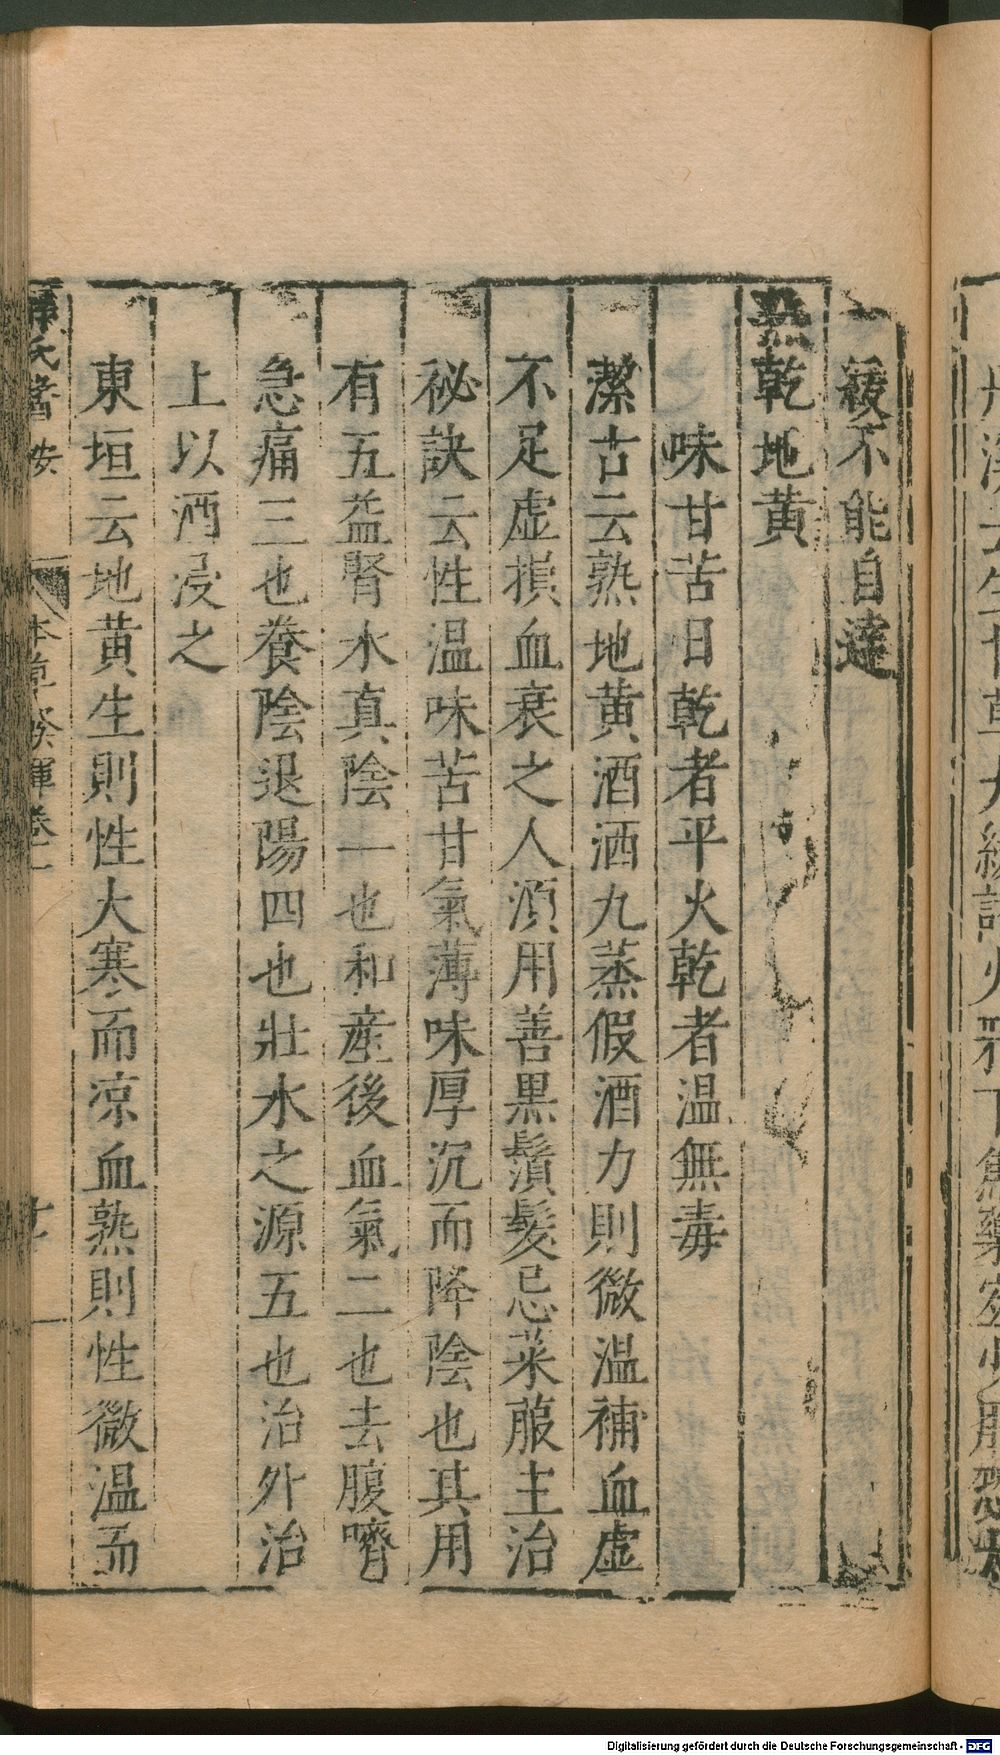 緩不能自達
熟乾地黄
味甘苦日乾者平火乾者温無毒
潔古云熟地黄酒洒九蒸假酒力則微温補血虚
不足虚損血衰之人須用善黒鬚髮忌萊菔主治
祕訣云性温味苦甘氣薄味厚沉而降陰也其用
有五益腎水真陰一也和産後血氣二也去腹嚌
急痛三也養陰退陽四也壯水之源五也治外治
上以酒浸之
東垣云地黄生則性大寒而凉血熟則性微温而
本草發揮卷一
Digitalisierung gefördert durch die Deutsche Forschungsgemeinschaft - DFG